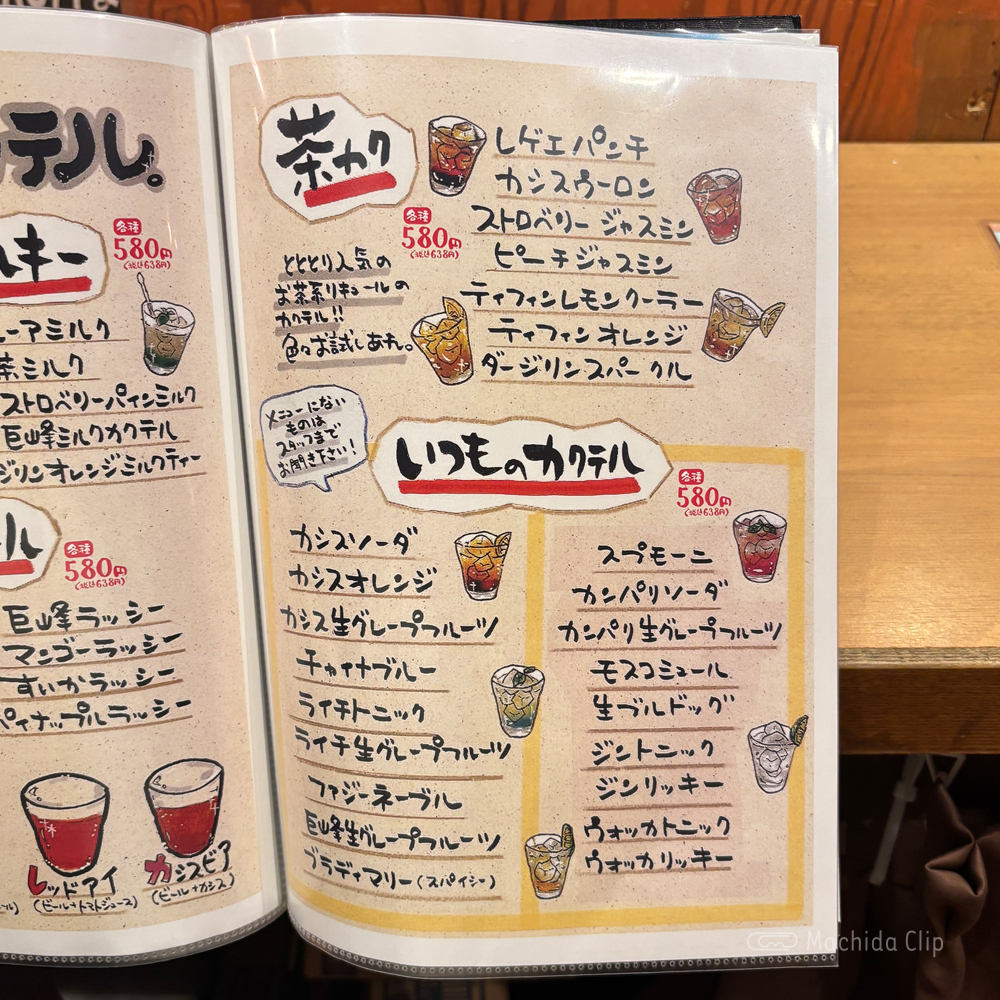 テル。
ルキー
各種
580円
(税込638円)
ューアミルク
茶ミルク
ストロベリーパインミルク
巨峰ミルクカクテル
ジリンオレンジミルクティー
ール
各種
580円
(税込638円)
巨峰ラッシー
マンゴーラッシー
すいかラッシー
パイナップルラッシー
レッドアイ
(ビール+トマトジュース)
カシスビア
(ビール+カシス)
茶カク
各種
580円
(税込638円)
とととり人気の
お茶系リキュールの
カクテル!!
色々お試しあれ。
レゲエパンチ
カシスウーロン
ストロベリージャスミン
ピーチジャスミン
ティフィンレモンクーラー
ティフィンオレンジ
ダージリンスパークル
メニューにない
ものは
スタッフまで
お聞き下さい!
いつものカクテル
各種
580円
(税込638円)
カシスソーダ
カシスオレンジ
カシス生グレープフルーツ
チャイナブルー
ライチトニック
ライチ生グレープフルーツ
ファジーネーブル
巨峰生グレープフルーツ
ブラディマリー(スパイシー)
スプモーニ
カンパリソーダ
カンパリ生グレープフルーツ
モスコミュール
生ブルドッグ
ジントニック
ジンリッキー
ウォッカトニック
ウォッカリッキー
Machida Clip